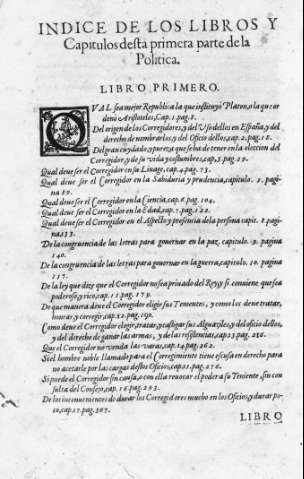 INDICE DE LOS LIBROS Y
Capitulos desta primera parte de la
Politica.
LIBRO PRIMERO.
QVAL sea mejor Republica la que instituyò Platon, o la que or
denò Aristoteles, Cap. 1. pag. 1.
Del origen de los Corregidores, y del Vso dellos en España, y del
derecho de nombrarlos, y del Oficio dellos, cap. 2. pag. 18.
Del gran cuydado, y pureza que se ha de tener en la eleccion del
Corregidor, y de su vida y costumbres, cap. 3. pag. 29.
Qual deue ser el Corregidor en su Linage, cap. 4. pag. 73.
Qual deue ser el Corregidor en la Sabiduria y prudencia, capitulo. 5. pagi-
na 89.
Qual deue ser el Corregidor en la Ciencia, cap. 6. pag. 104.
Qual deue ser el Corregidor en la Edad, cap. 7. pag. 122.
Qual deue ser el Corregidor en el Aspecto y presencia de la persona capit. 8. pagi-
na, 133.
De la congruencia de las letras para gouernar en la paz, capitulo. 9. pagina
140.
De la congruencia de las letras para gouernar en la guerra, capitulo. 10. pagina
157.
De la ley que dize que el Corregidor no sea priuado del Rey, y si conuiene que sea
poderoso, y rico, cap. 11. pag. 179.
De que manera deue el Corregidor elegir sus Tenientes, y como los deue tratar,
honrar, y corregir, cap. 12. pag. 190.
Como deue el Corregidor elegir, tratar, y castigar sus Alguaziles, y del oficio dellos,
y del derecho de quitar las armas, y de las resistencias, cap. 13. pag. 236.
Que el Corregidor no venda las varas, cap. 14. pag. 262.
Si el hombre noble llamado para el Corregimiento tiene escusa en derecho para
no acetarle por las cargas destos Oficios, cap. 15. pag. 276.
Si puede el Corregidor sin causa, o con ella reuocar el poder a su Teniente, sin con
sulta del Consejo, cap. 16. pag. 293.
De los inconuenientes de durar los Corregidores mucho en los Oficios, y durar po-
co, cap. 17. pag. 307.
LIBRO